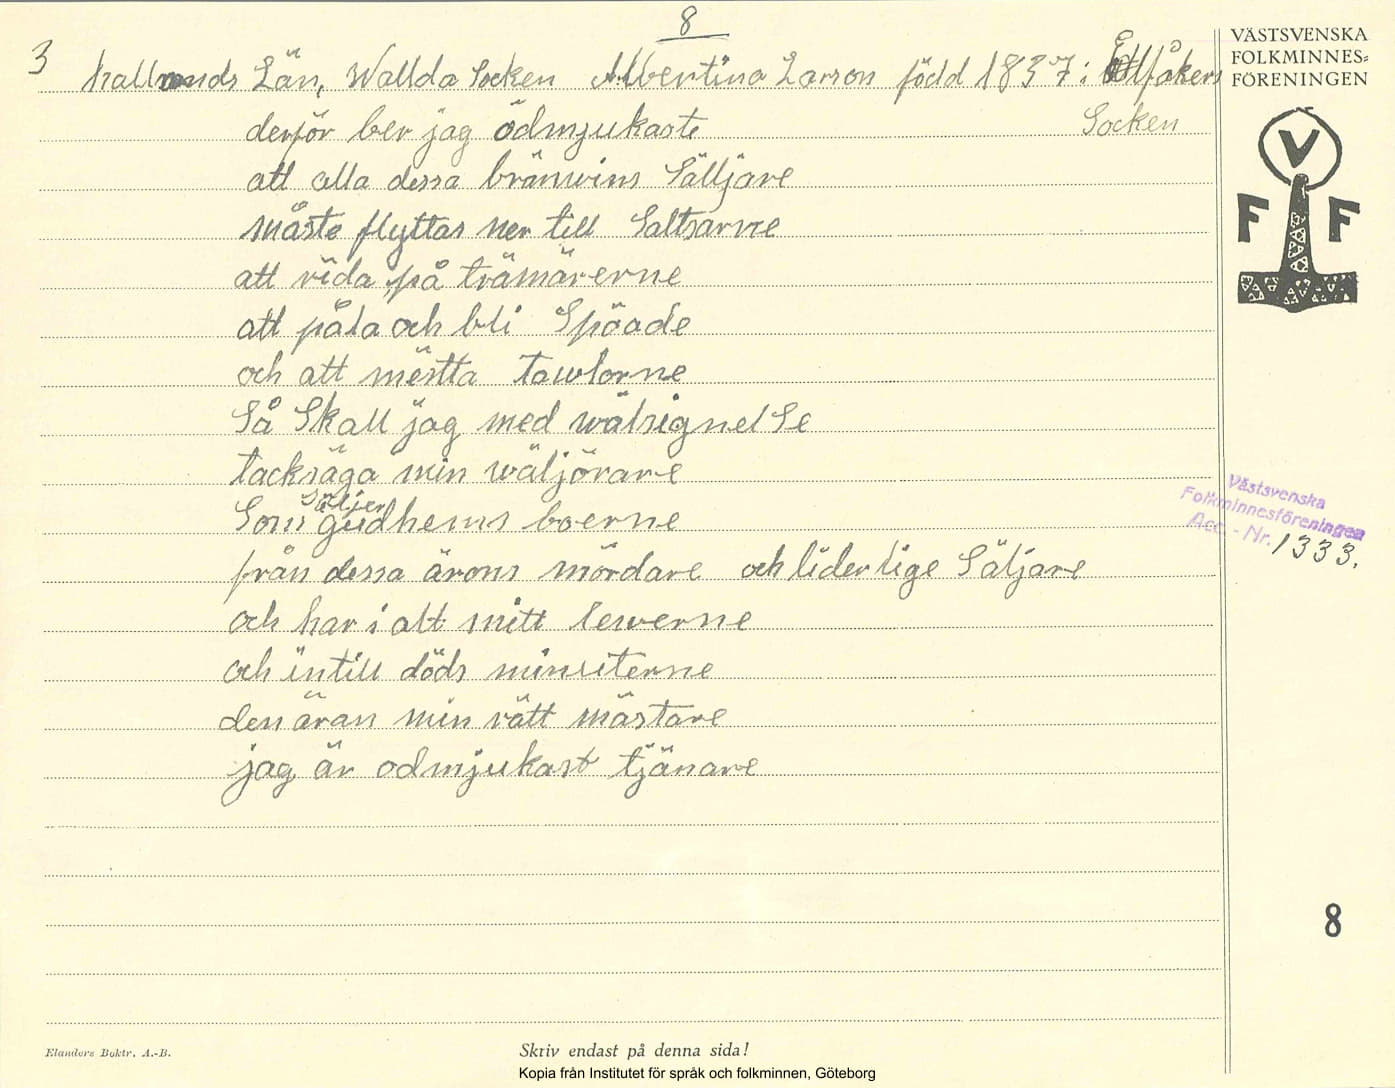 8
3 hallands Län, Wallda Socken Albertina Larson född 1837 i
Socken
derför ber jag ödmjukaste
att alla dessa bränwins Sälljare
måste flyttas ner till Saltsarne
att rida på trämärerne
att påla och bli Spöade
och att mestta tawlorne
Så Skall jag med wälsignelSe
tacksäga min wäljörare
Som gudhems boerne
Säljer
från dessa ärons mördare och liderlige Säljare
och har i alt mitt lewerne
och intill döds minuterne
den äran min rätt mästare
jag är odmjukast tjänare
VÄSTSVENSKA
FOLKMINNES=
FÖRENINGEN
V
F F
Västsvenska
Folkminnesföreningen
Acc. - Nr. 1333.
8
Elanders Boktr. A.-B.
Skriv endast på denna sida!
Kopia från Institutet för språk och folkminnen, Göteborg